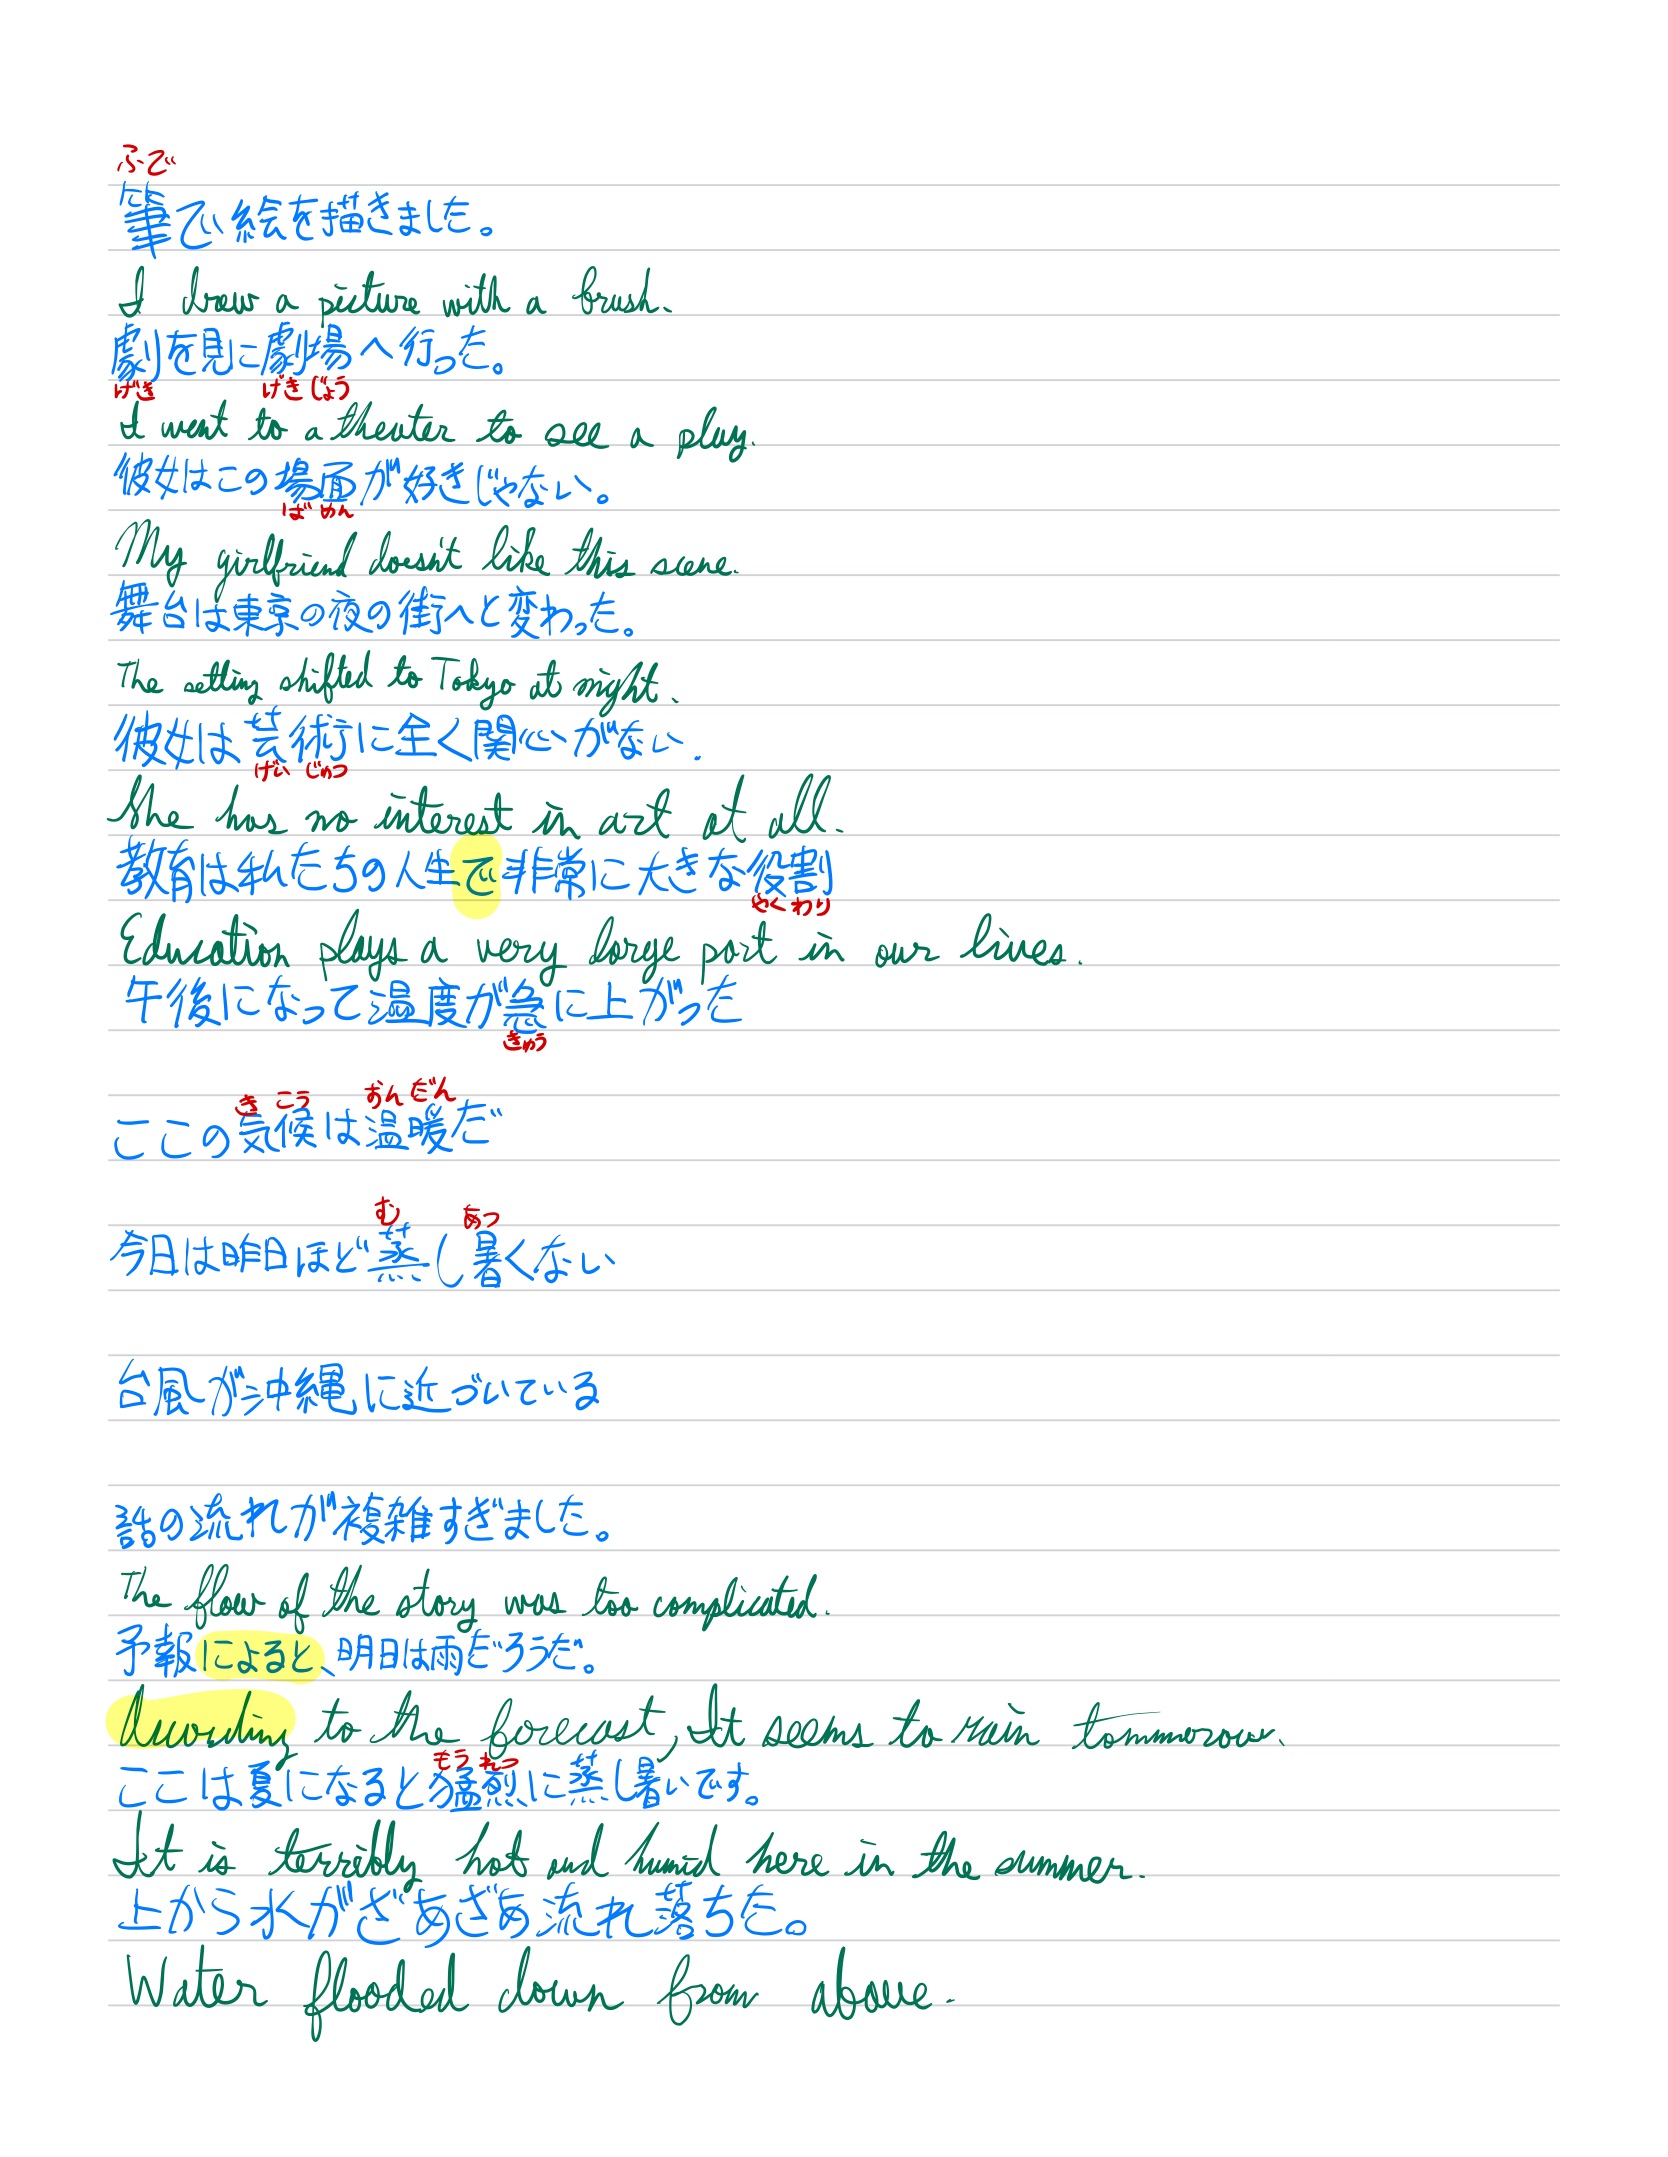 ふで
筆で絵を描きました。
I drew a picture with a brush.
劇を見に劇場へ行った。
げき げきじょう
I went to a theater to see a play.
彼女はこの場面が好きじゃない。
ばめん
My girlfriend doesn't like this scene.
舞台は東京の夜の街へと変わった。
The setting shifted to Tokyo at night.
彼女は芸術に全く関心がない.
げい じゅつ
She has no interest in art at all.
教育は私たちの人生で非常に大きな役割
やくわり
Education plays a very large part in our lives.
午後になって温度が急に上がった
きゅう
き こう おんだん
ここの気候は温暖だ
む あつ
今日は昨日ほど蒸し暑くない
台風が沖縄に近づいている
話の流れが複雑すぎました。
The flow of the story was too complicated.
予報によると、明日は雨だろうだ。
According to the forecast, It seems to rain tommorow.
もう れつ
ここは夏になると猛烈に蒸し暑いです。
It is terribly hot and humid here in the summer.
上から水がざあざあ流れ落ちた。
Water flooded down from above.